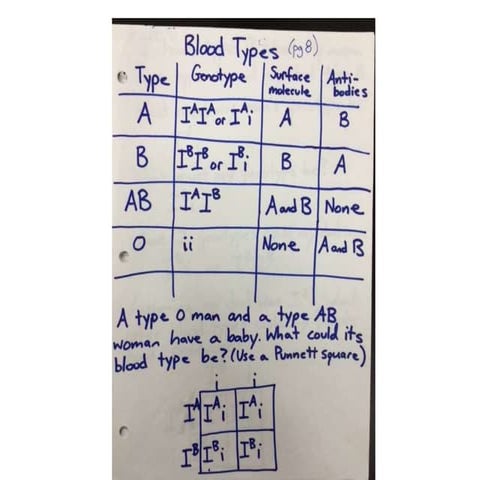 Blood Types (pg 8)
Type Genotype Surface molecule Anti-bodies
A IᴬIᴬ or Iᴬi A B
B IᴮIᴮ or Iᴮi B A
AB IᴬIᴮ A and B None
O ii None A and B
A type O man and a type AB
woman have a baby. What could its
blood type be? (Use a Punnett square)
i i
Iᴬ Iᴬi Iᴬi
Iᴮ Iᴮi Iᴮi